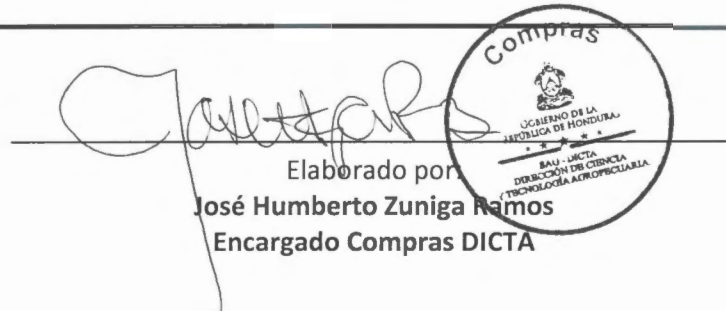 Compras
GOBIERNO DE LA
REPÚBLICA DE HONDURAS
SAG - DICTA
DIRECCIÓN DE CIENCIA
Y TECNOLOGÍA AGROPECUARIA
Elaborado por:
José Humberto Zuniga Ramos
Encargado Compras DICTA